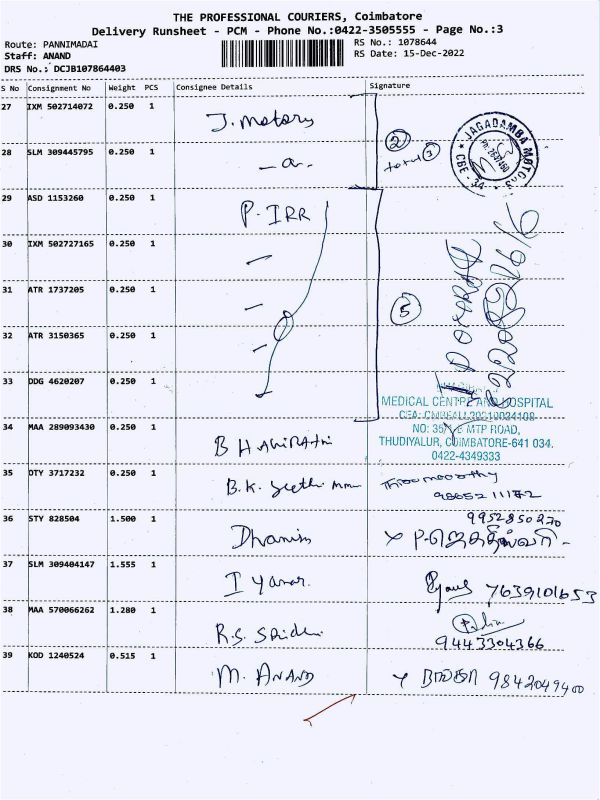 THE PROFESSIONAL COURIERS, Coimbatore
Delivery Runsheet - PCM - Phone No.:0422-3505555 - Page No.:3
Route: PANNIMADAI
RS No.: 1078644
Staff: ANAND
RS Date: 15-Dec-2022
DRS No.: DCJB107864403
S No Consignment No Weight PCS Consignee Details Signature
27 IXM 502714072 0.250 1 J. Motors
28 SLM 309445795 0.250 1 -a-
② total ③
JAGADAMBA MOTORS
CBE - 34
29 ASD 1153260 0.250 1 P. IRR
30 IXM 502727165 0.250 1
31 ATR 1737205 0.250 1
⑤
32 ATR 3150365 0.250 1
33 DDG 4620207 0.250 1
MEDICAL CENTRE AND HOSPITAL
MTP ROAD,
THUDIYALUR, COIMBATORE-641 034.
0422-4349333
34 MAA 289093430 0.250 1
35 DTY 3717232 0.250 1 B.K.
36 STY 828504 1.500 1
9952850270
37 SLM 309404147 1.555 1 7639101653
38 MAA 570066262 1.280 1 R.S.
9443304366
39 KOD 1240524 0.515 1 M. ANAND 9842049400